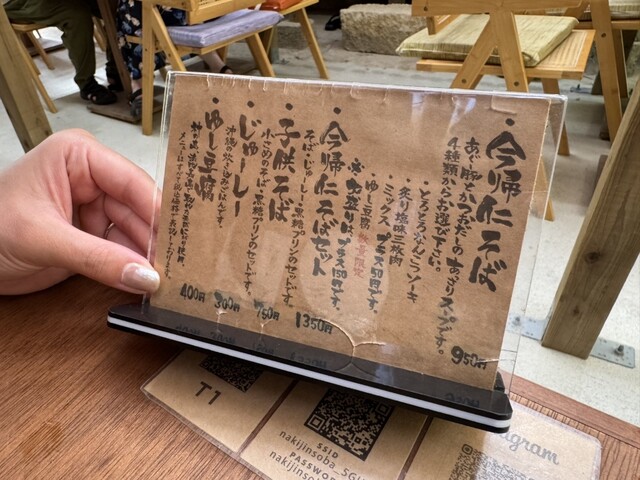 ・今帰仁そば
あぐー豚とかつおだしのあっさりスープです。
4種類からお選び下さい。
・とろとろなんこつソーキ
・炙り塩味三枚肉
・ミックス プラス50円です。
・ゆし豆腐
大盛りはプラス150円です。
950円
・今帰仁そばセット
そば・じゅーしー・黒糖プリンのセットです。
1350円
・子供そば
小さめのそば・黒糖プリンのセットです。
750円
・じゅーしー
沖縄の炊き込みごはんです。
300円
・ゆし豆腐
400円
T1
SSID
nakijinsoba_5G
PASSWO
nakijinsoba
agram